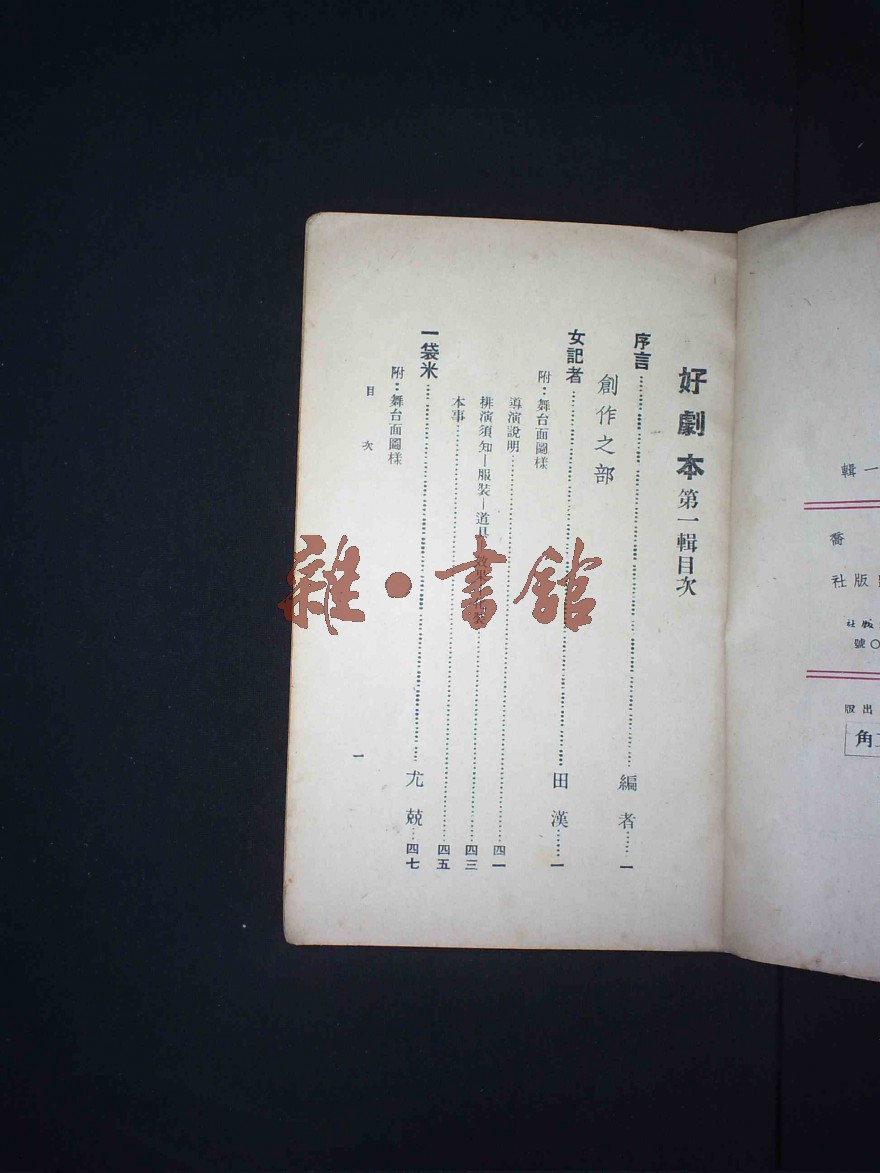 好劇本第一輯目次
序言……編者……一
創作之部
女記者……田漢……一
附：舞台面圖樣
導演說明……四一
排演須知—服裝—道具—效果……四三
本事……四五
一袋米……尤兢……四七
附：舞台面圖樣
目次
一
一輯
喬
版社
版社
〇號
出版
角
雜·書館